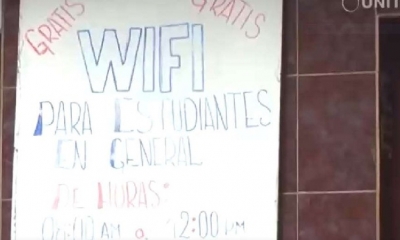 GRATIS GRATIS
WIFI
PARA ESTUDIANTES
EN GENERAL
DE HORAS:
06:00 AM a 12:00 PM
UNIT